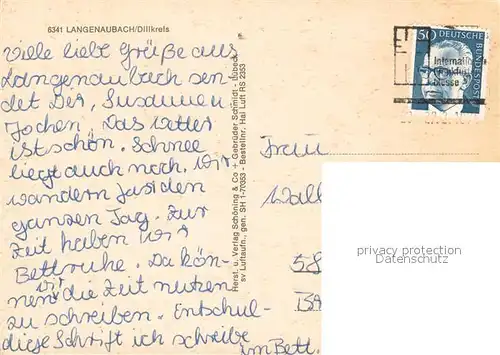 6341 LANGENAUBACH/Dillkreis
Viele liebe Grüße aus
Langenaubach sen-
det Dir, Susanne u.
Jochen. Das Wetter
ist schön. Schnee
liegt auch noch. Wir
wandern fast den
ganzen Tag. Zur
Zeit haben wir
Bettruhe. Da kön-
nen wir die Zeit nutzen
zu schreiben. Entschul-
diese Schrift ich schreibe
im Bett.
Herst. u. Verlag Schöning & Co + Gebrüder Schmidt - Lübeck
sv Luftaufn., gen. SH 1-70/53 - Bestellnr. Hal Luft RS 2353
50
DEUTSCHE
BUNDESPOST
Internation
Frankfur
Messe
Frau
Wall
58
privacy protection
Datenschutz